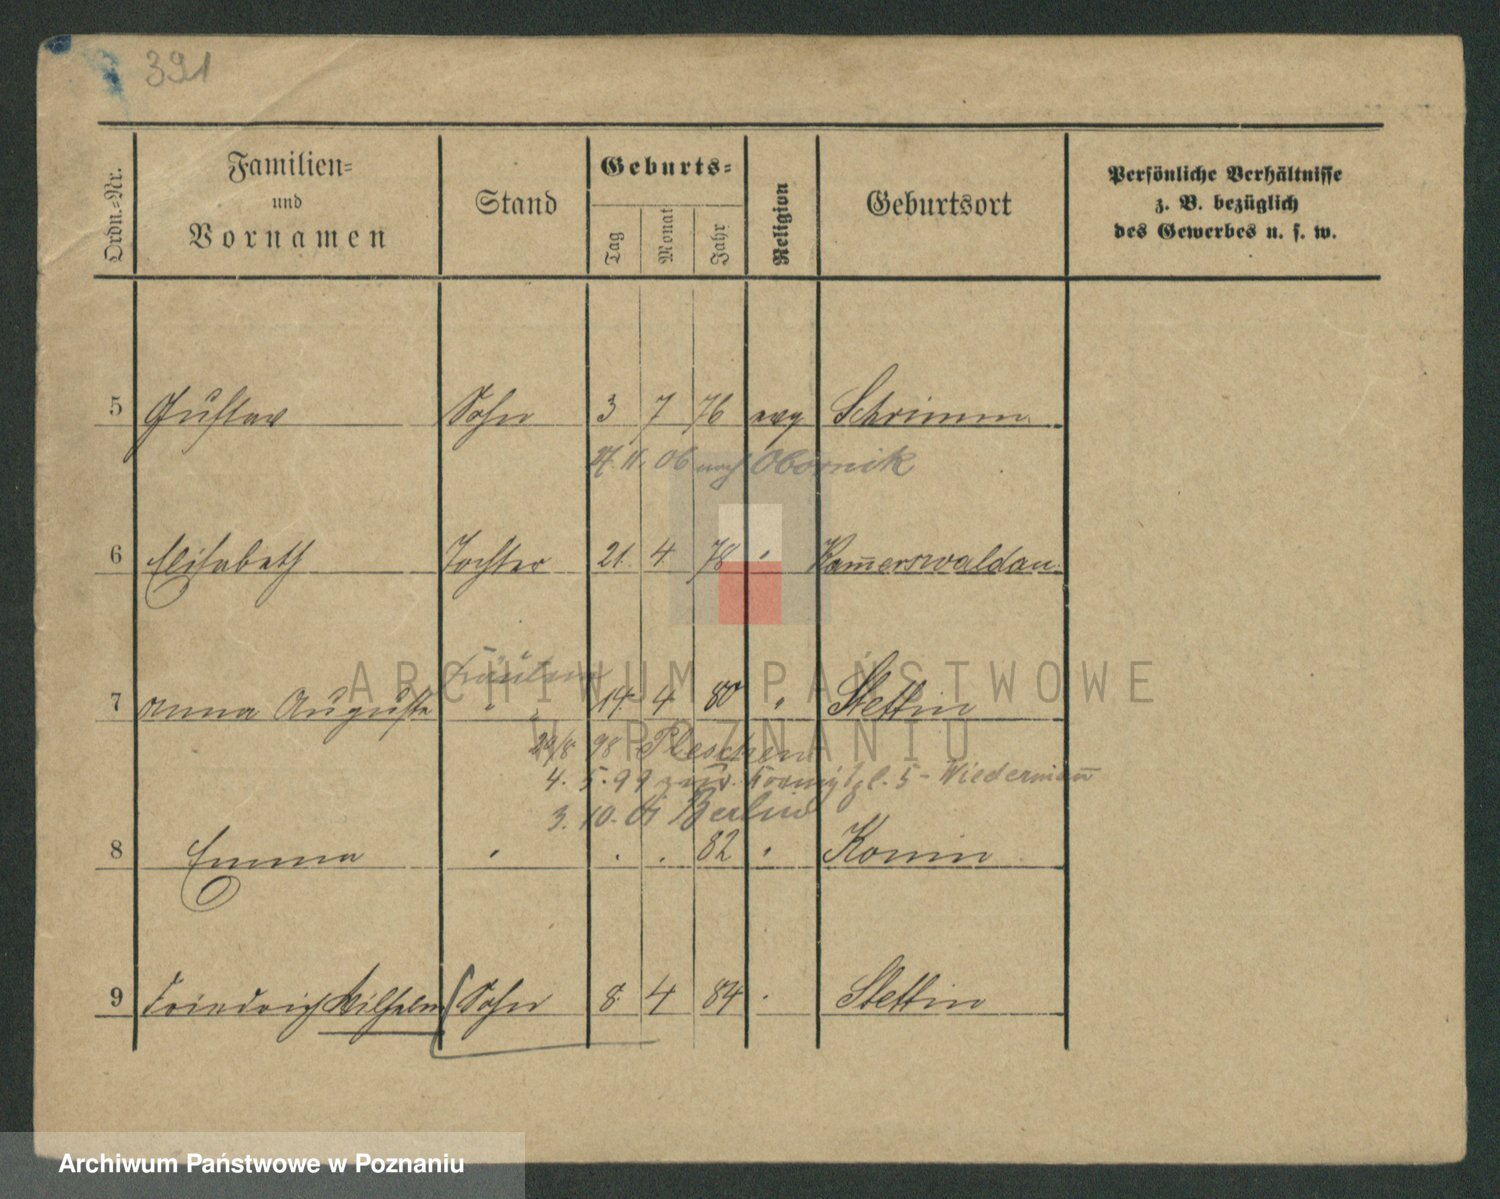 391
Ordn.-Nr.
Familien-
und
Vornamen
Stand
Geburts-
Tag
Monat
Jahr
Religion
Geburtsort
Persönliche Verhältnisse
z. B. bezüglich
des Gewerbes u. s. w.
5 Gustav Sohn 3 7 76 evg Schrimm
27. 11. 06 nach Obornik
6 Elisabeth Tochter 21. 4 78 " Kam̅erswaldau
Fräulein
7 Anna Auguste " " 14. 4 80 " Stettin
29/8 98 Pleschen
4. 5. 99 zur. 5 - Wiederman̅
3. 10. 01 Berlin
8 Emma " . . 82 " Konin
9 Friedrich Wilhelm Sohn 8. 4 84 " Stettin
ARCHIWUM PAŃSTWOWE
W POZNANIU
Archiwum Państwowe w Poznaniu